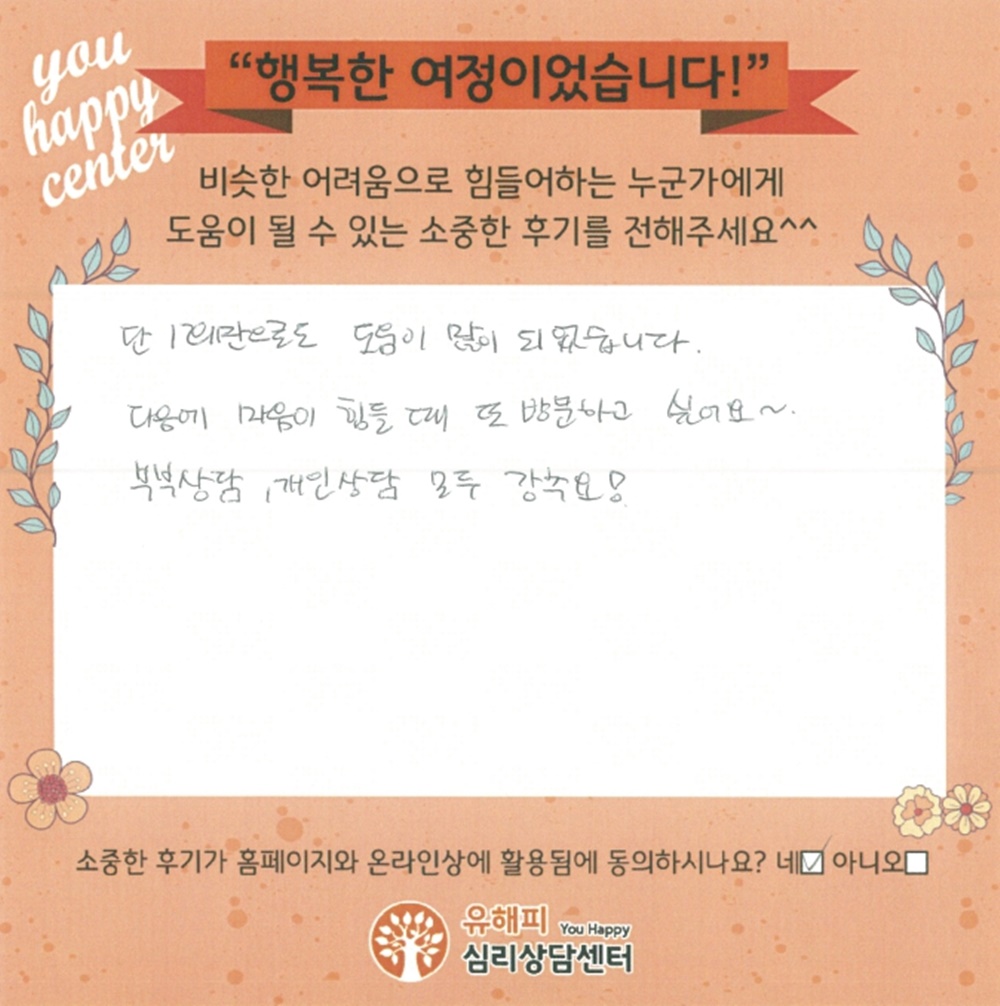 you
happy
center
“행복한 여정이었습니다!”
비슷한 어려움으로 힘들어하는 누군가에게
도움이 될 수 있는 소중한 후기를 전해주세요^^
단 1회만으로도 도움이 많이 되었습니다.
다음에 마음이 힘들 때 또 방문하고 싶어요~.
부부상담, 개인상담 모두 강추요!
소중한 후기가 홈페이지와 온라인상에 활용됨에 동의하시나요? 네☑ 아니오☐
유해피 You Happy
심리상담센터